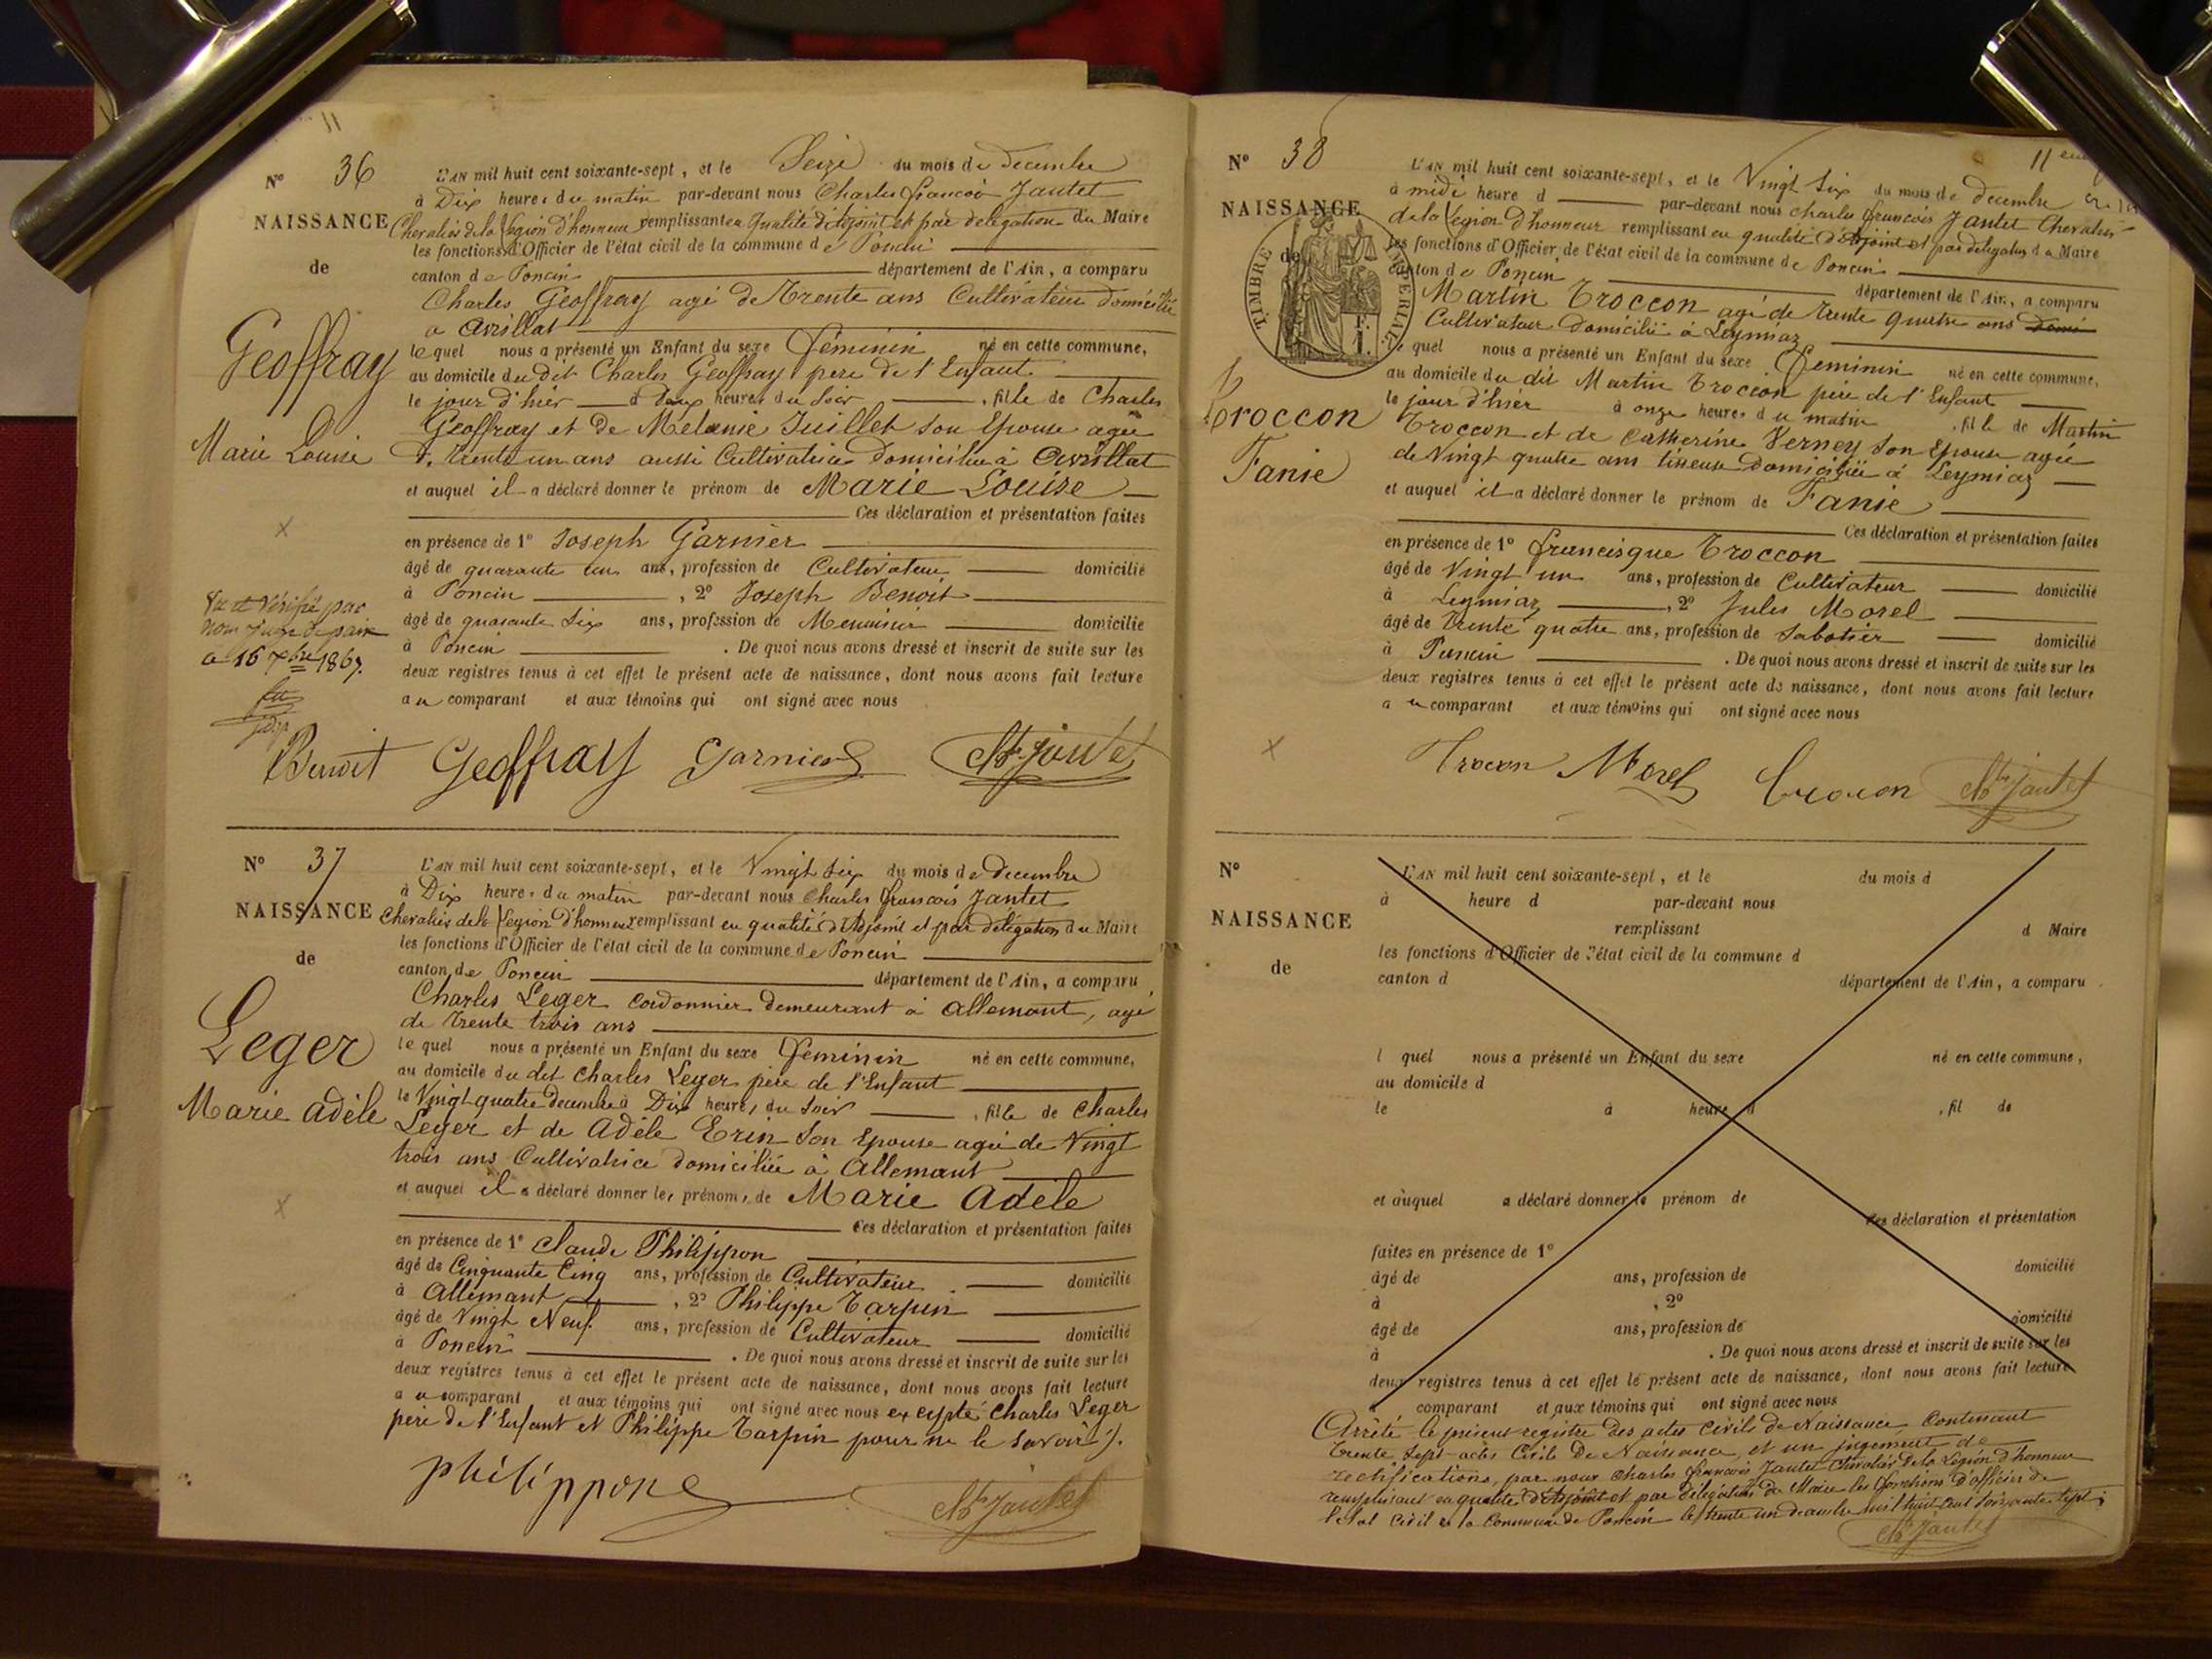 11
N° 36
NAISSANCE
de
Geoffray
Marie Louise
X
Vu et Vérifié par
nous Juge de paix
a 16 Xbre 1867.
L'AN mil huit cent soixante-sept, et le Seize du mois de decembre
à Dix heures du matin par-devant nous Charles francois Jantet
Chevalier de la Legion d'honneur remplissant en qualité d'Adjoint et par delegation du Maire
les fonctions d'Officier de l'état civil de la commune de Poncin
canton de Poncin département de l'Ain, a comparu
Charles Geoffray agé de Trente ans Cultivateur domicilié
a Avrillat
lequel nous a présenté un Enfant du sexe féminin né en cette commune,
au domicile du dit Charles Geoffray pere de l'Enfant
le jour d'hier à Deux heures du Soir , fille de Charles
Geoffray et de Melanie Juillet son Epouse agée
de trente un ans aussi Cultivatrice Domiciliée à Avrillat
et auquel il a déclaré donner le prénom de Marie Louise
Ces déclaration et présentation faites
en présence de 1° Joseph Garnier
âgé de quarante un ans, profession de Cultivateur domicilié
à Poncin , 2° Joseph Benoit
âgé de quarante Six ans, profession de Menuisier domicilié
à Poncin . De quoi nous avons dressé et inscrit de suite sur les
deux registres tenus à cet effet le présent acte de naissance, dont nous avons fait lecture
au comparant et aux témoins qui ont signé avec nous
Benoit Geoffray Garnier Jantet
N° 37
NAISSANCE
de
Leger
Marie Adèle
X
L'AN mil huit cent soixante-sept, et le Vingt Six du mois de decembre
à Dix heures du matin par-devant nous Charles francois Jantet
Chevalier de la Legion d'honneur remplissant en qualité d'Adjoint et par délégation du Maire
les fonctions d'Officier de l'état civil de la commune de Poncin
canton de Poncin département de l'Ain, a comparu
Charles Leger Cordonnier demeurant à Allemant, agé
de Trente trois ans
lequel nous a présenté un Enfant du sexe féminin né en cette commune,
au domicile du dit Charles Leger père de l'Enfant
le Vingt quatre decembre à Dix heures du Soir , fille de Charles
Leger et de Adèle Erin Son Epouse agée de Vingt
trois ans Cultivatrice domiciliée à Allemant
et auquel il a déclaré donner les prénoms de Marie Adèle
Ces déclaration et présentation faites
en présence de 1° Claude Philippon
âgé de Cinquante Cinq ans, profession de Cultivateur domicilié
à Allemant , 2° Philippe Tarpin
âgé de Vingt Neuf ans, profession de Cultivateur domicilié
à Poncin . De quoi nous avons dressé et inscrit de suite sur les
deux registres tenus à cet effet le présent acte de naissance, dont nous avons fait lecture
au comparant et aux témoins qui ont signé avec nous excepté Charles Leger
père de l'Enfant et Philippe Tarpin pour ne le savoir.
philippone Jantet
N° 38
NAISSANCE
de
TIMBRE IMPERIAL
Troccon
Fanie
X
11
L'AN mil huit cent soixante-sept, et le Vingt Six du mois de decembre
à midi heure d par-devant nous Charles francois Jantet Chevalier
de la Legion d'honneur remplissant en qualité d'Adjoint et par delegation du Maire
les fonctions d'Officier de l'état civil de la commune de Poncin
canton de Poncin département de l'Ain, a comparu
Martin Troccon agé de trente quatre ans domi
Cultivateur Domicilié à Leymiaz
lequel nous a présenté un Enfant du sexe feminin né en cette commune,
au domicile du dit Martin Troccon père de l'Enfant
le jour d'hier à onze heures du matin , fille de Martin
Troccon et de Catherine Verney Son Epouse agée
de Vingt quatre ans tisseuse Domiciliée à Leymiaz
et auquel il a déclaré donner le prénom de Fanie
Ces déclaration et présentation faites
en présence de 1° francisque Troccon
âgé de Vingt un ans, profession de Cultivateur domicilié
à Leymiaz , 2° Jules Morel
âgé de Trente quatre ans, profession de Sabotier domicilié
à Poncin . De quoi nous avons dressé et inscrit de suite sur les
deux registres tenus à cet effet le présent acte de naissance, dont nous avons fait lecture
au comparant et aux témoins qui ont signé avec nous
Trocon Morel Trocon Jantet
N°
NAISSANCE
de
L'AN mil huit cent soixante-sept, et le du mois d
à heure d par-devant nous
remplissant d Maire
les fonctions d'Officier de l'état civil de la commune d
canton d département de l'Ain, a comparu
l quel nous a présenté un Enfant du sexe né en cette commune,
au domicile d
le à heure d , fil de
et auquel a déclaré donner le prénom de
Ces déclaration et présentation
faites en présence de 1°
âgé de ans, profession de domicilié
à , 2°
âgé de ans, profession de domicilié
à . De quoi nous avons dressé et inscrit de suite sur les
deux registres tenus à cet effet le présent acte de naissance, dont nous avons fait lecture
a comparant et aux témoins qui ont signé avec nous
Arrêté le présent registre des actes civils de Naissance, Contenant
trente Sept actes Civils De Naissance, et un jugement de
rectifications, par nous Charles francois Jantet Chevalier de la Légion d'honneur
remplissant en qualité d'Adjoint et par délégation du Maire les fonctions d'officier de
l'état Civil de la Commune de Poncin le trente un decembre mil huit cent soixante sept
Jantet